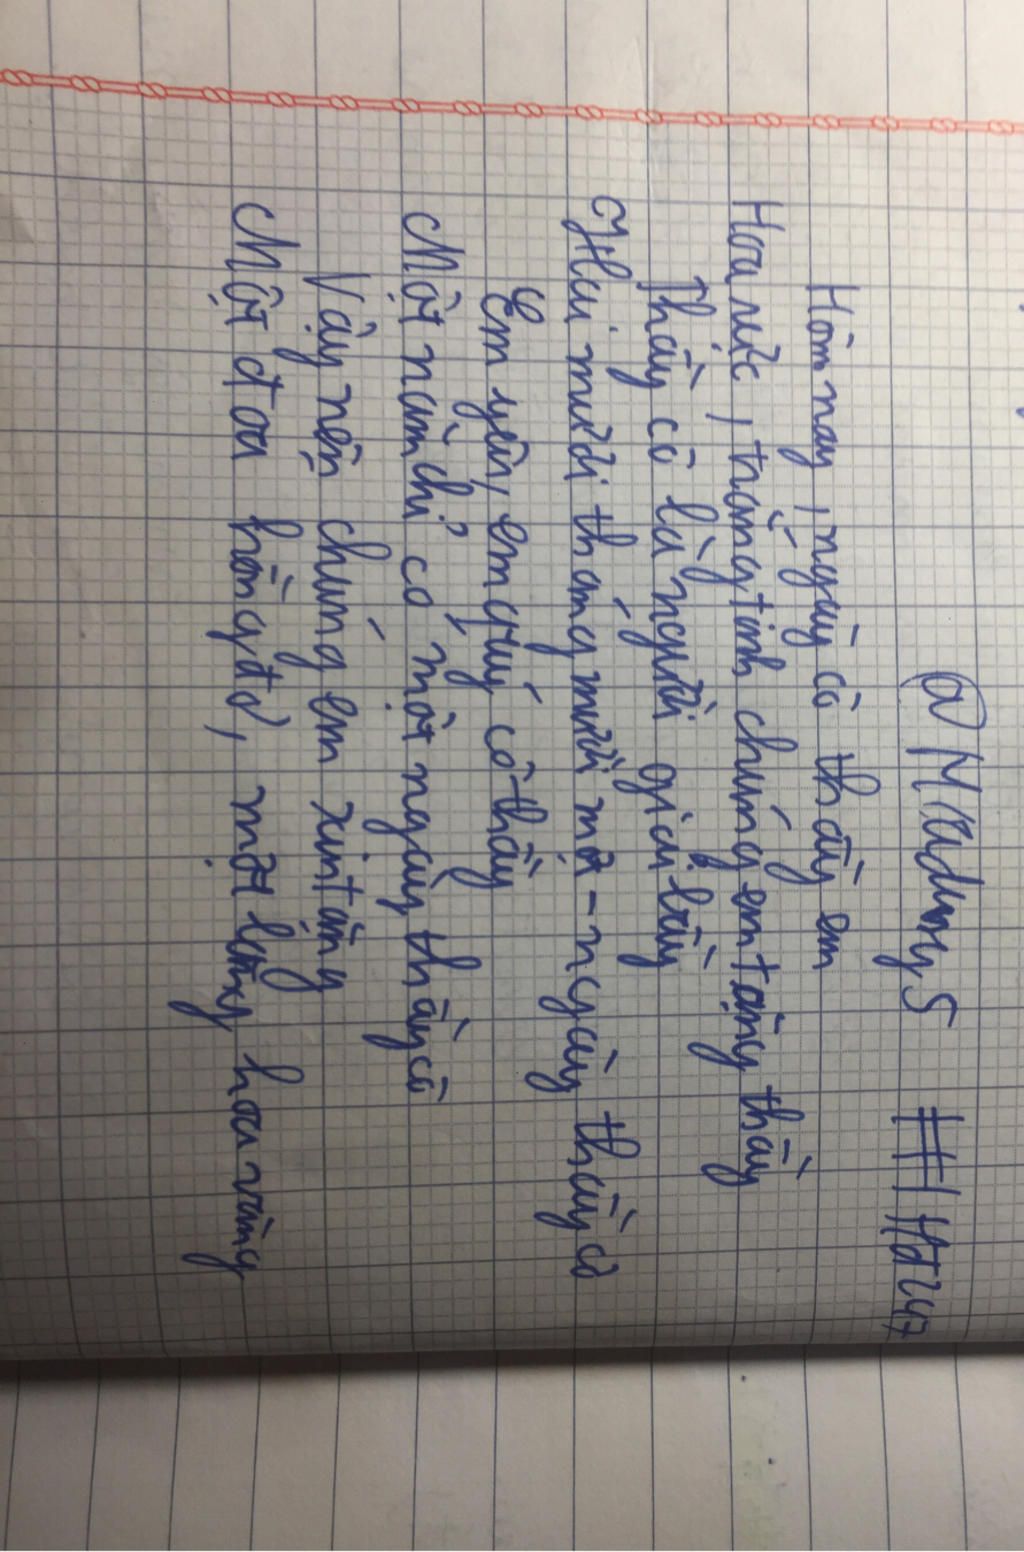 @Madmy5 #Hd247
Hôm nay, ngày cô thầy em
Hoa nức, trăng tinh chúng em tặng thầy
Thầy cô là người giai bầy
Hai mười tháng mười một - ngày thầy cô
Em yêu, em quý cô thầy
Một năm chỉ có một ngày thầy cô
Vậy nên chúng em xin tặng
Một đoá hồng đỏ, một lẵng hoa vàng